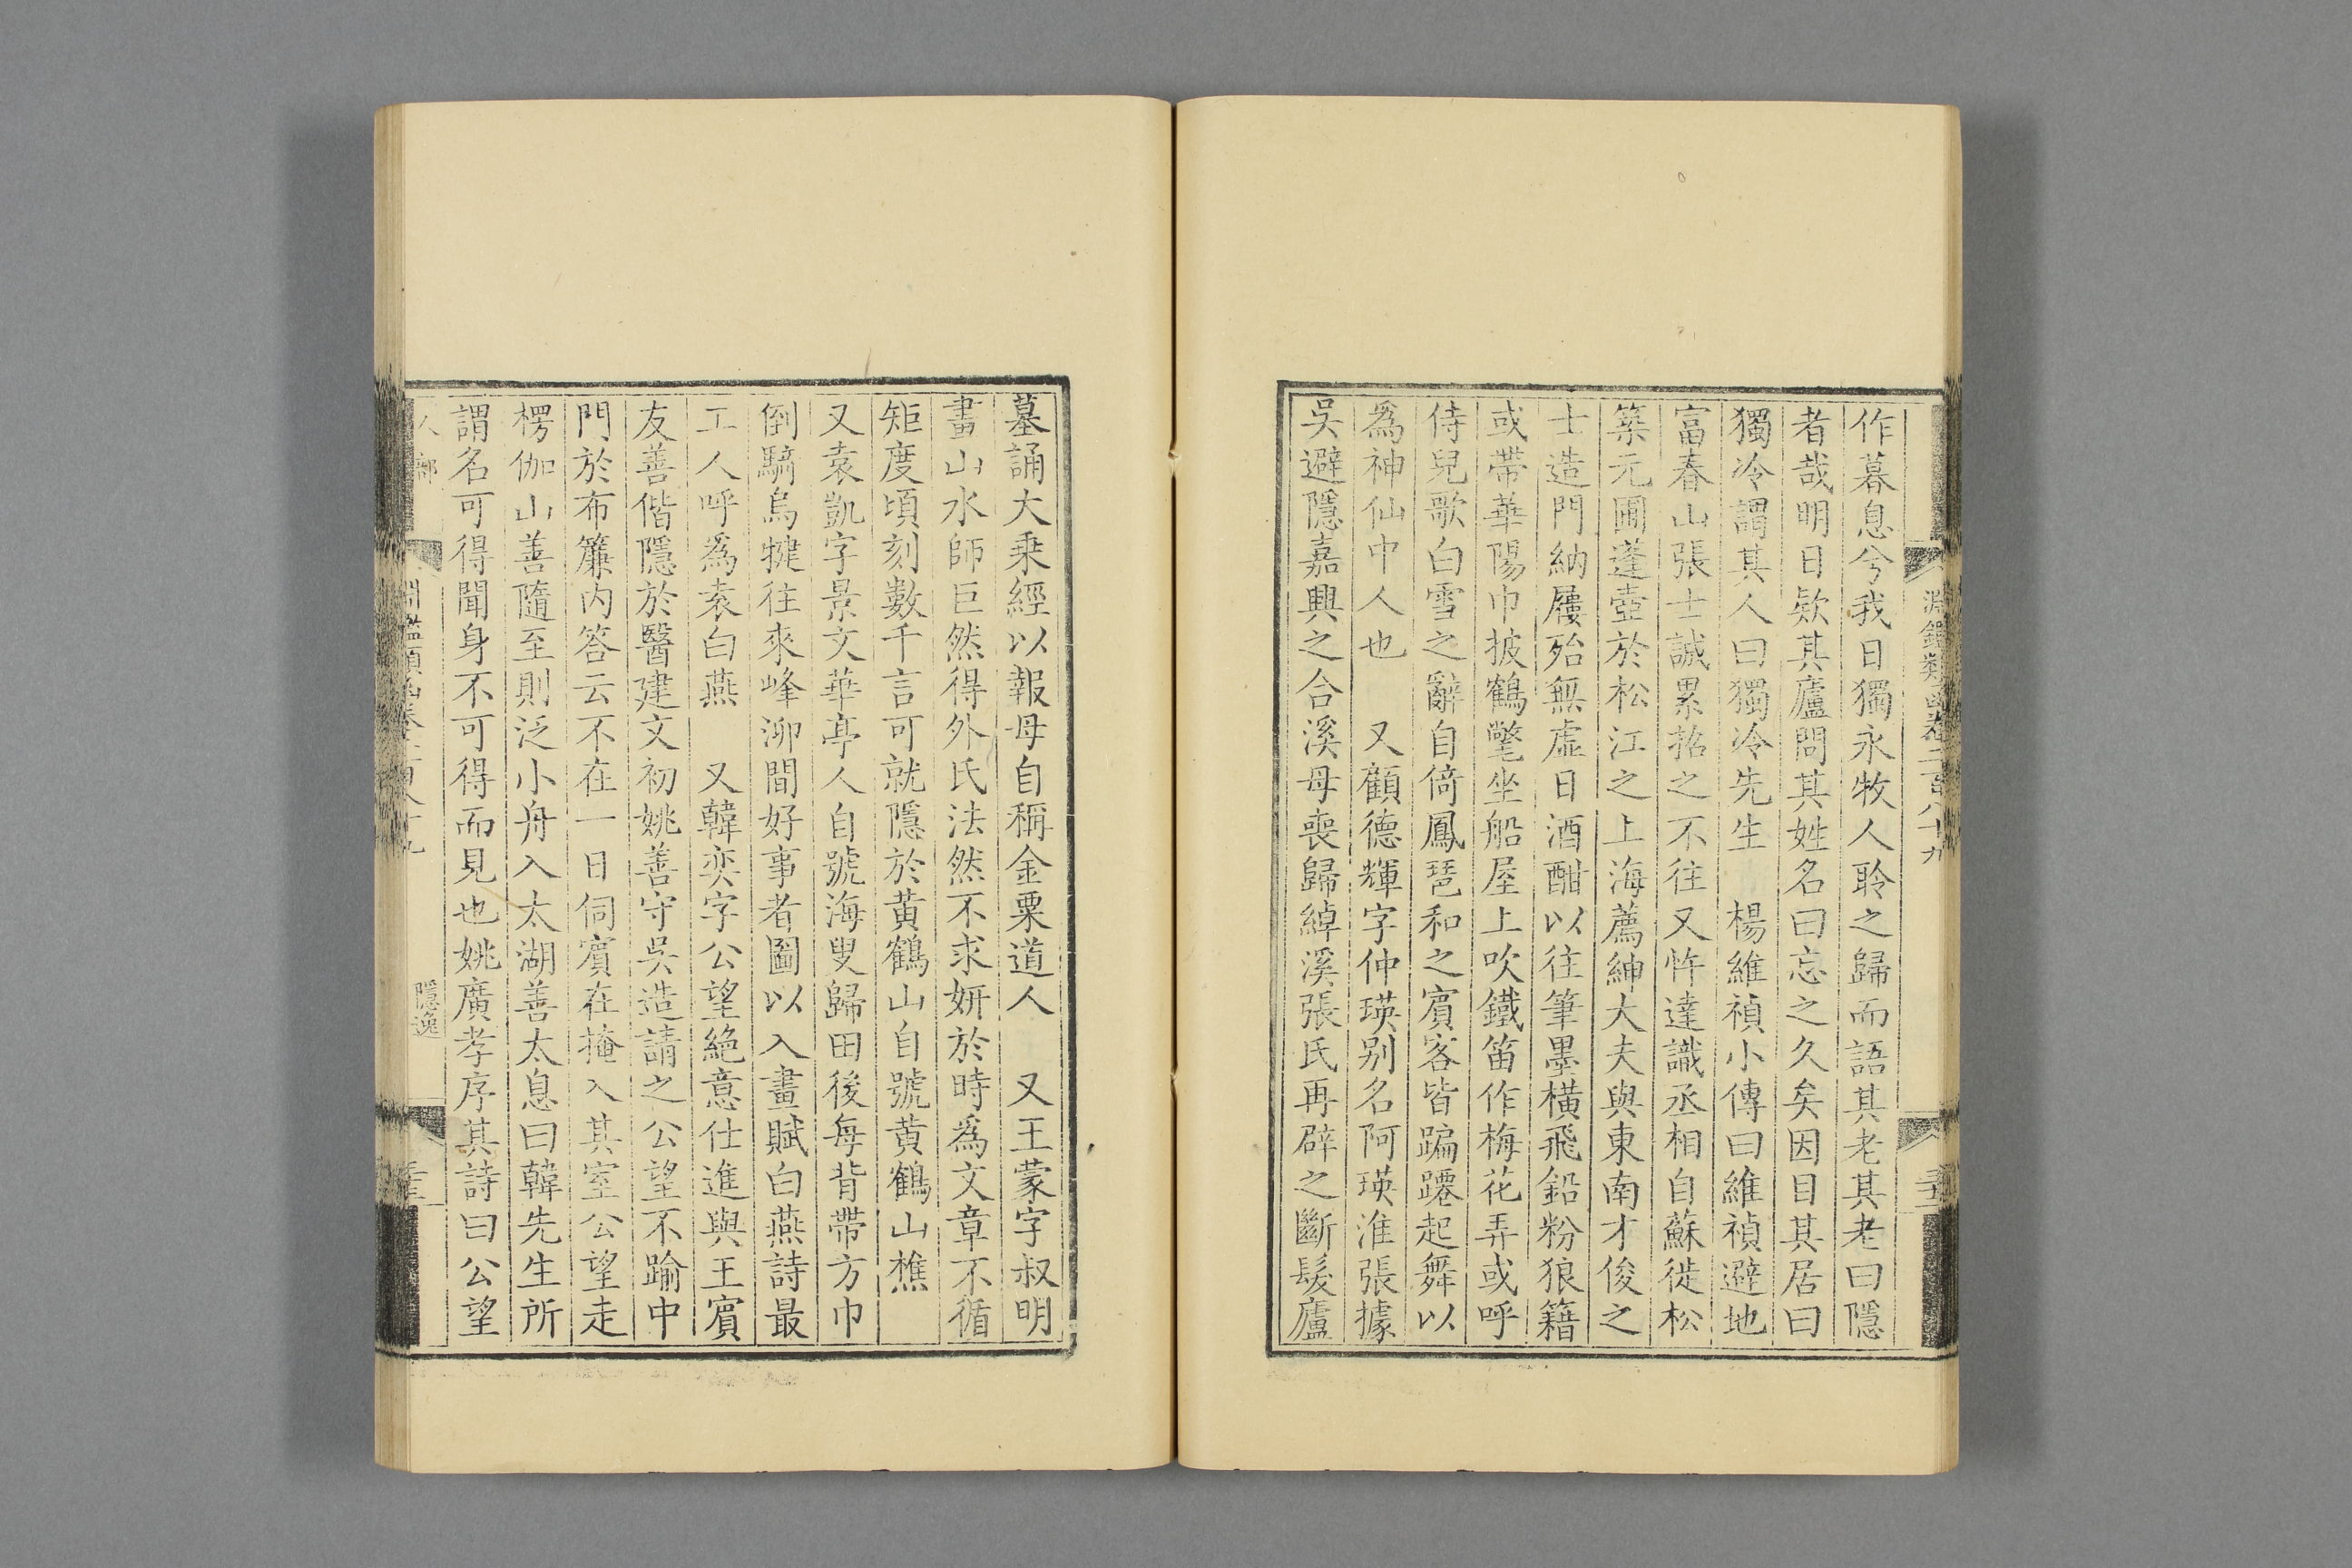 淵鑑類函卷二百八十九
作暮息兮我日獨永牧人聆之歸而語其老其老曰隱
者哉明日欵其廬問其姓名曰忘之久矣因目其居曰
獨冷謂其人曰獨冷先生　楊維禎小傳曰維禎避地
富春山張士誠累招之不往又忤達識丞相自蘇徙松
築元圃蓬壺於松江之上海薦紳大夫與東南才俊之
士造門納屨殆無虛日酒酣以往筆墨橫飛鉛粉狼籍
或帶華陽巾披鶴氅坐船屋上吹鐵笛作梅花弄或呼
侍兒歌白雪之辭自倚鳳琶和之賓客皆蹁躚起舞以
爲神仙中人也　又顧德輝字仲瑛别名阿瑛淮張據
吳避隱嘉興之合溪母喪歸綽溪張氏再辟之斷髮廬
墓誦大乘經以報母自稱金粟道人　又王蒙字叔明
畫山水師巨然得外氏法然不求妍於時爲文章不循
矩度頃刻數千言可就隱於黃鶴山自號黄鶴山樵
又袁凱字景文華亭人自號海叟歸田後每背帶方巾
倒騎烏犍往來峰泖間好事者圖以入畫賦白燕詩最
工人呼爲袁白燕　又韓奕字公望絶意仕進與王賓
友善偕隱於醫建文初姚善守吳造請之公望不踰中
門於布簾内答云不在一日伺賓在掩入其室公望走
楞伽山善隨至則泛小舟入太湖善太息曰韓先生所
謂名可得聞身不可得而見也姚廣孝序其詩曰公望
人部
淵鑑類函卷二百八十九
隱逸